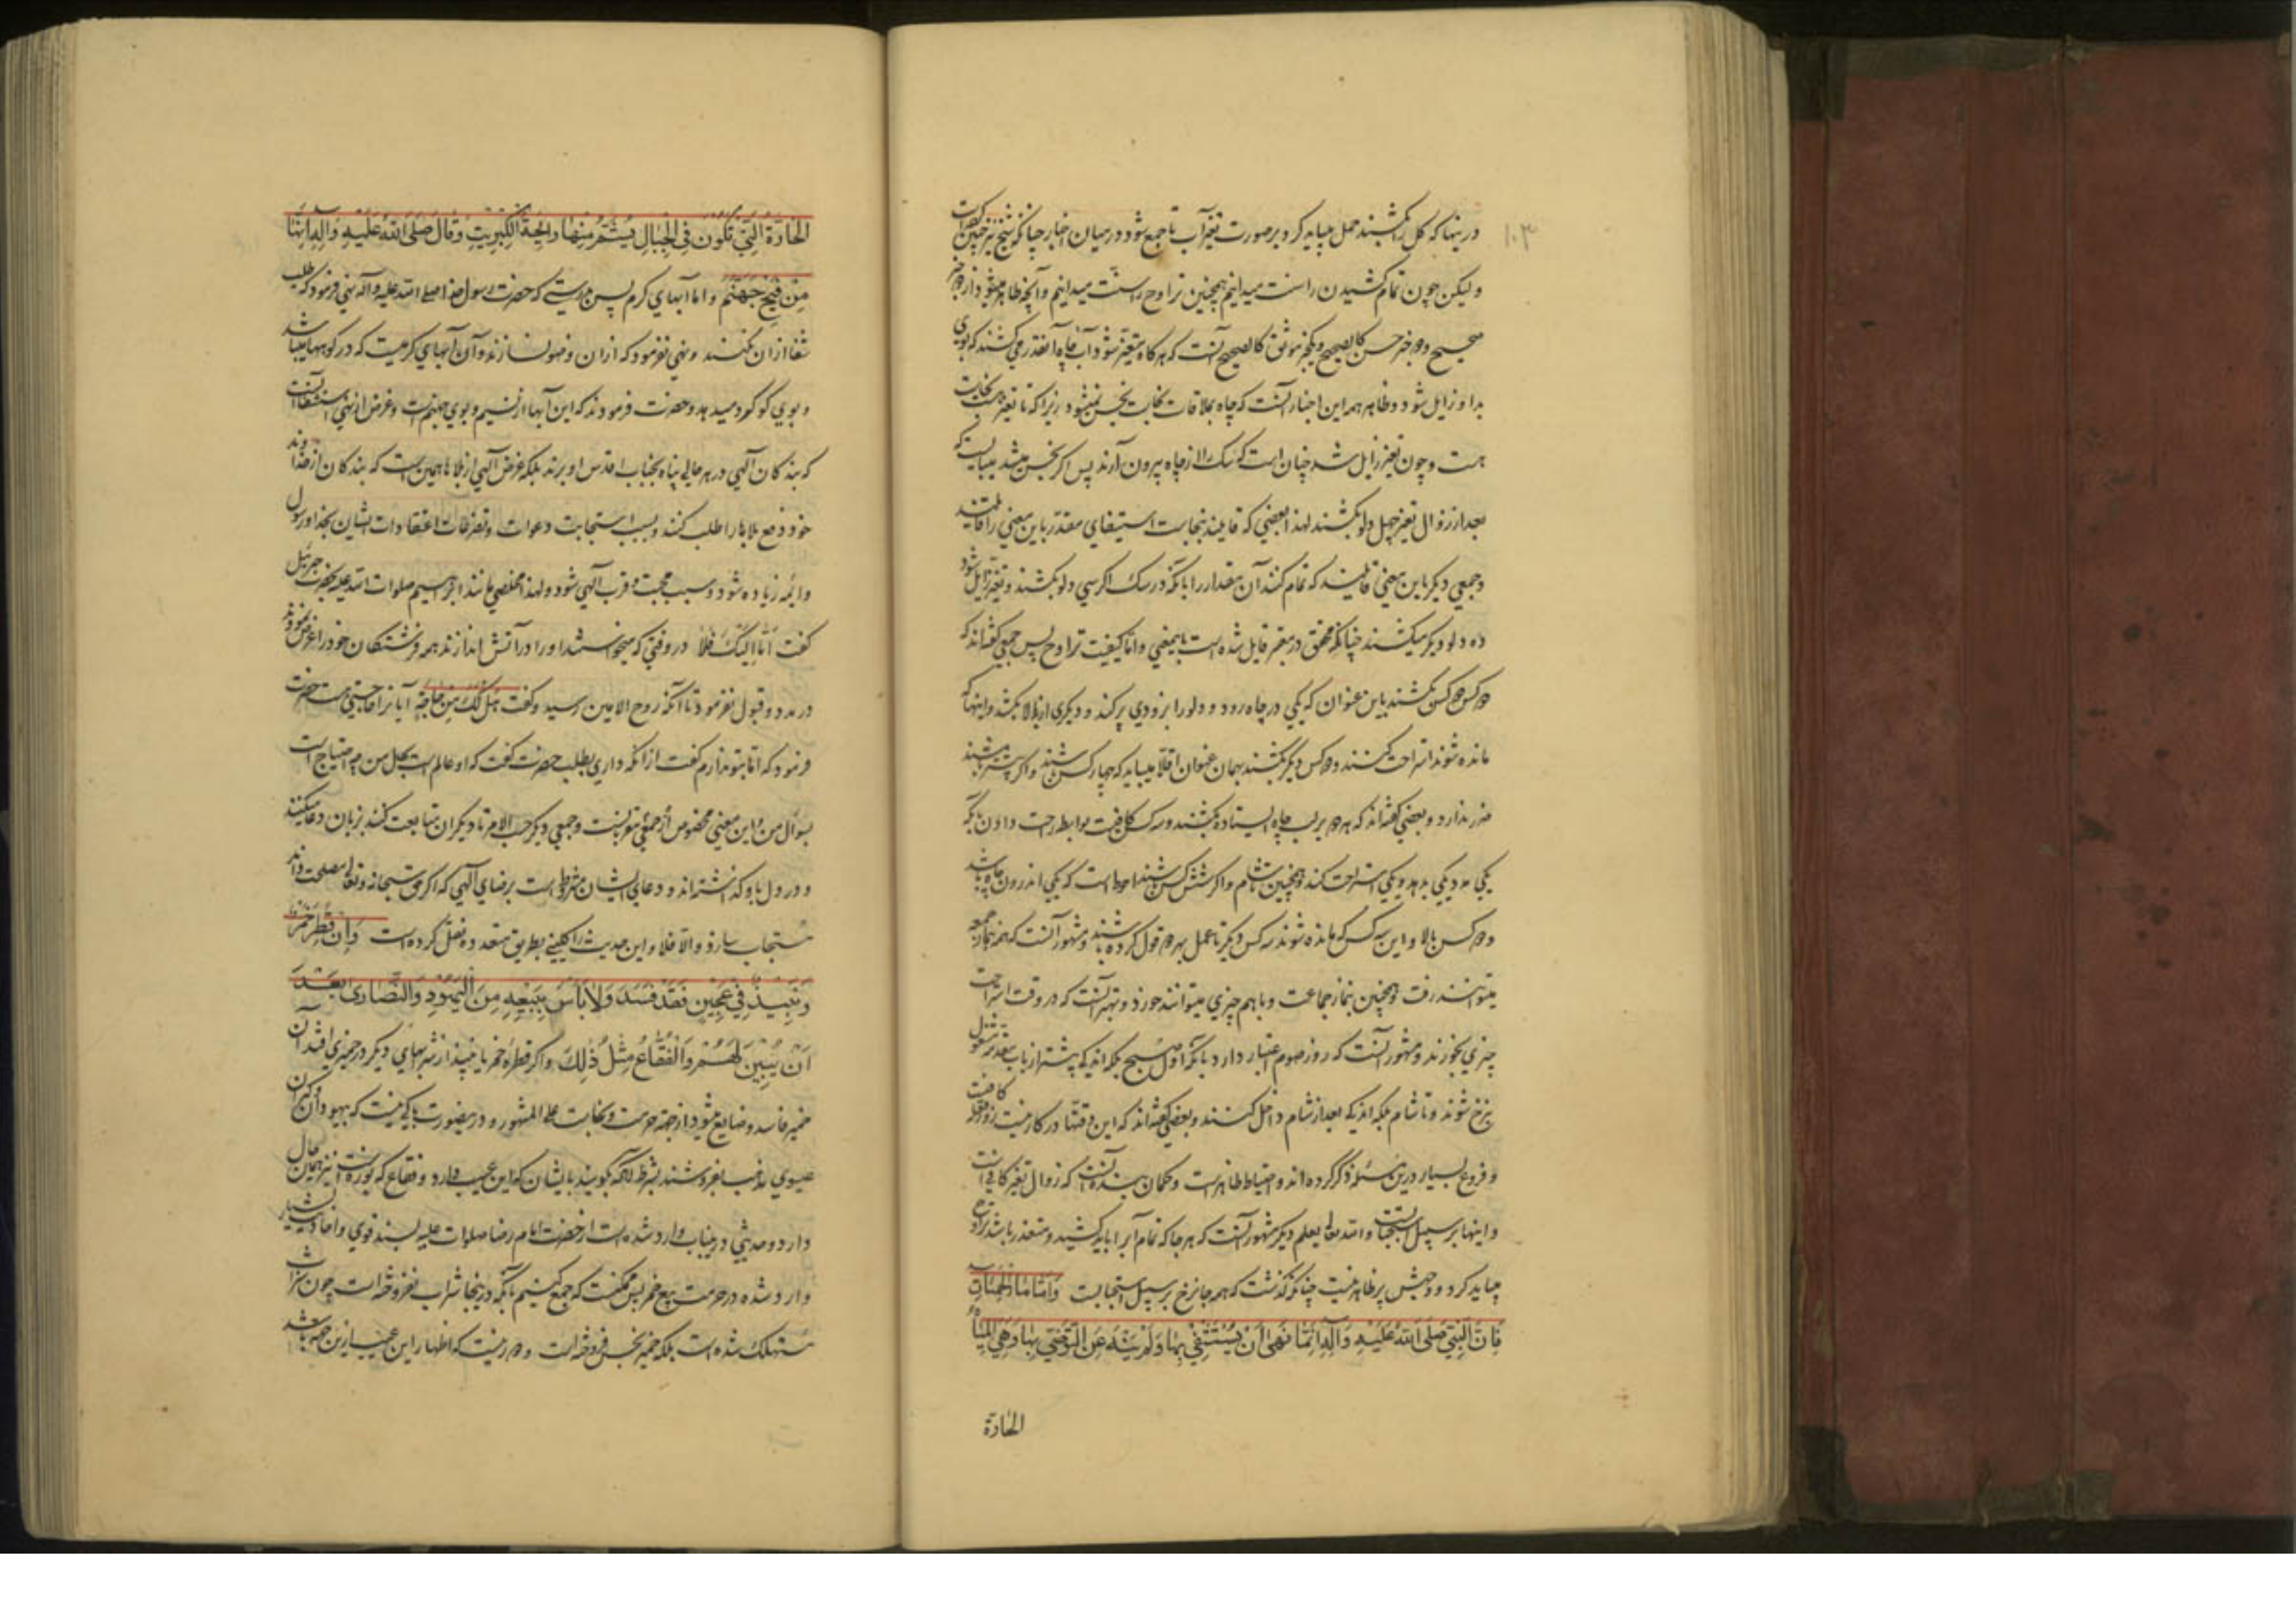 ۱۰۳
درینها که کل را بکشند حمل میباید کرد بر صورت تغیر آب تا جمع شود در میان اخبار چنانکه شیخ نیز چنین کفته است
ولیکن چون تمام کشیدن راست میدانیم همچنین تراوح راست میدانیم و آنچه ظاهر میشود از دو خبر
صحیح و دو خبر حسن کالصحیح و یکخبر موثق کالصحیح آنست که هر کاه متغیر شود آب چاه آنقدر می کشند که بوی
بد او زایل شود و ظاهر همه این اخبار آنست که چاه بملاقات نجاست نجس نمیشود زیرا که تا تغیر هست نجاست
هست و چون تغیر زایل شد چنان است که سک را از چاه بیرون آرند پس اکر نجس میشد میبایست که
بعد از زوال تغیر چهل دلو بکشند لهذا بعضی که قایلند بنجاست استیفای مقدر باین معنی را قایلند
و جمعی دیکر باین معنی قائلند که تمام کنند آن مقدار را بآنکه در سک اکر سی دلو بکشند و تغیر زایل شود
ده دلو دیکر میکشند چنانکه محقق در معتبر قایل شده است باینمعنی و اما کیفیت تراوح پس جمعی کفته اند که
دو کس دو کس بکشند باین عنوان که یکی در چاه رود و دلو را بزودی پر کند و دیکری از بالا بکشد و اینها که
مانده شوند استراحت کنند و دو کس دیکر بکشند بهمان عنوان اقلا میباید که چهار کس باشند و اکر بیشتر باشند
ضرر ندارد و بعضی کفته اند که هر دو بر لب چاه ایستاده بکشند و سه کس کافیست بواسطه راحت دادن بآنکه
یکی مدد یکی بدهد و یکی استراحت کند و همچنین تا شام و اکر شش کس باشند احوط است که یکی اندرون چاه باشد
و دو کس بالا و این سه کس که مانده شوند سه کس دیکر تا عمل بهر دو قول کرده باشند و مشهور آنست که همه بنماز جمعه
میتوانند رفت و همچنین بنماز جماعت و با هم چیزی میتوانند خورد و بهتر آنست که در وقت استراحت
چیزی بخورند و مشهور آنست که روز صوم اعتبار دارد بآنکه اول صبح بلکه اندکی پیشتر از باب مقدمه مشغول
نزح شوند و تا شام بلکه اندکی بعد از شام داخل کنند و بعضی کفته اند که این دقتها در کار نیست روز کافیست
و فروع بسیار درین مسئله ذکر کرده اند و احتیاط ظاهر است و کمان بنده آنست که زوال تغیر کافی است
و اینها بر سبیل استحبابست و الله تعالی یعلم دیکر مشهور آنست که هر جا که تمام آب را باید کشید و متعذر باشد تراوح
میباید کرد و وجهش پر ظاهر نیست چنانکه کذشت که همه جا نزح بر سبیل استحبابست وَاَمّا مَاءُ الحَمّاتِ
فَاِنَّ النَّبِيَّ صَلَّى اللهُ عَلَيْهِ وَآلِهِ اِنَّمَا نَهٰى اَنْ يُسْتَشْفىٰ بِهَا وَلَمْ يَنْهَ عَنِ التَّوَضِّي بِهَا وَهِيَ الْمِيَاهُ
الحَارّة
الحَارَّةُ الَّتِي تَكُوْنُ فِي الْجِبَالِ يُشَمُّ مِنْهَا رَائِحَةُ الْكِبْرِيْتِ وَقَالَ صَلَّى اللهُ عَلَيْهِ وَآلِهِ اِنَّهَا
مِنْ فَيْحِ جَهَنَّمَ و اما آبهای کرم پس بدرستی که حضرت رسول خدا صلی الله علیه وآله نهی فرمود که طلب
شفا ازان نکنند و نهی نفرمود که ازان وضو نسازند و آن آبهای کرمیست که در کوهها میباشد
و بوی کوکرد میدهد و حضرت فرمودند که این آبها از نسیم و بوی جهنم است و غرض از نهی استشفا آنست
که بندکان آلهی در هر حالی پناه بجناب اقدس او برند بلکه غرض آلهی از بلاها همین است که بندکان از خداوند
خود دفع بلاها را طلب کنند و بسبب استجابت دعوات و تضرعات اعتقادات ایشان بخدا و رسول
و ائمه زیاده شود و سبب محبت و قرب آلهی شود و لهذا مخلصی مانند ابرهیم صلوات الله علیه بحضرت جبرئیل
کفت اَمّا اِلَيْكَ فَلَا در وقتی که میخواستند او را در آتش اندازند همه فرشتکان خود را عرض نمودند
در مدد و قبول نفرمود تا آنکه روح الامین رسید و کفت هَلْ لَكَ مِنْ حَاجَةٍ آیا ترا حاجتی هست حضرت
فرمود که اما بتو ندارم کفت ازانکه داری بطلب حضرت کفت که او عالم است بحال من چه احتیاج است
بسوال من و این معنی مخصوص از جمعی مقربانست و جمعی دیکر حسب الامر تا دیکران متابعت کنند بزبان دعا میکنند
و در دل باو کذاشته اند و دعای ایشان مشروط است برضای آلهی که اکر حق سبحانه و تعالی مصلحت داند
مستجاب سازد و الا فلا و این حدیث را کلینی بطریق متعدده نقل کرده است وَاِنْ قَطَرَ خَمْرٌ
وَنَبِيْذٌ فِي عَجِيْنٍ فَقَدْ فَسَدَ وَلَا بَأْسَ بِبَيْعِهِ مِنَ الْيَهُوْدِ وَالنَّصَارىٰ بَعْدَ
اَنْ يُبَيِّنَ لَهُمْ وَالْفُقَّاعُ مِثْلُ ذٰلِكَ و اکر قطرهٔ خمر یا نبیذ از شرابهای دیکر در خمیری افتد آن
خمیر فاسد و ضایع میشود از جهة حرمت و نجاست علی المشهور و درینصورت باکی نیست که بیهودان و کبران
عیسوی مذهب بفروشند بشرط آنکه بکویند بایشان که این عیب دارد و فقاع که بوزه است نیز همان حال
دارد و حدیثی درینباب وارد شده است از حضرت امام رضا صلوات علیه بسند قوی و احادیث بسیار
وارد شده در حرمت بیع خمر پس ممکنست که جمع کنیم بآنکه درینجا شراب نفروخته است چون شراب
مستهلک شده است بلکه خمیر نجس فروخته است و دور نیست که اظهار این عیب ازین جهه باشد